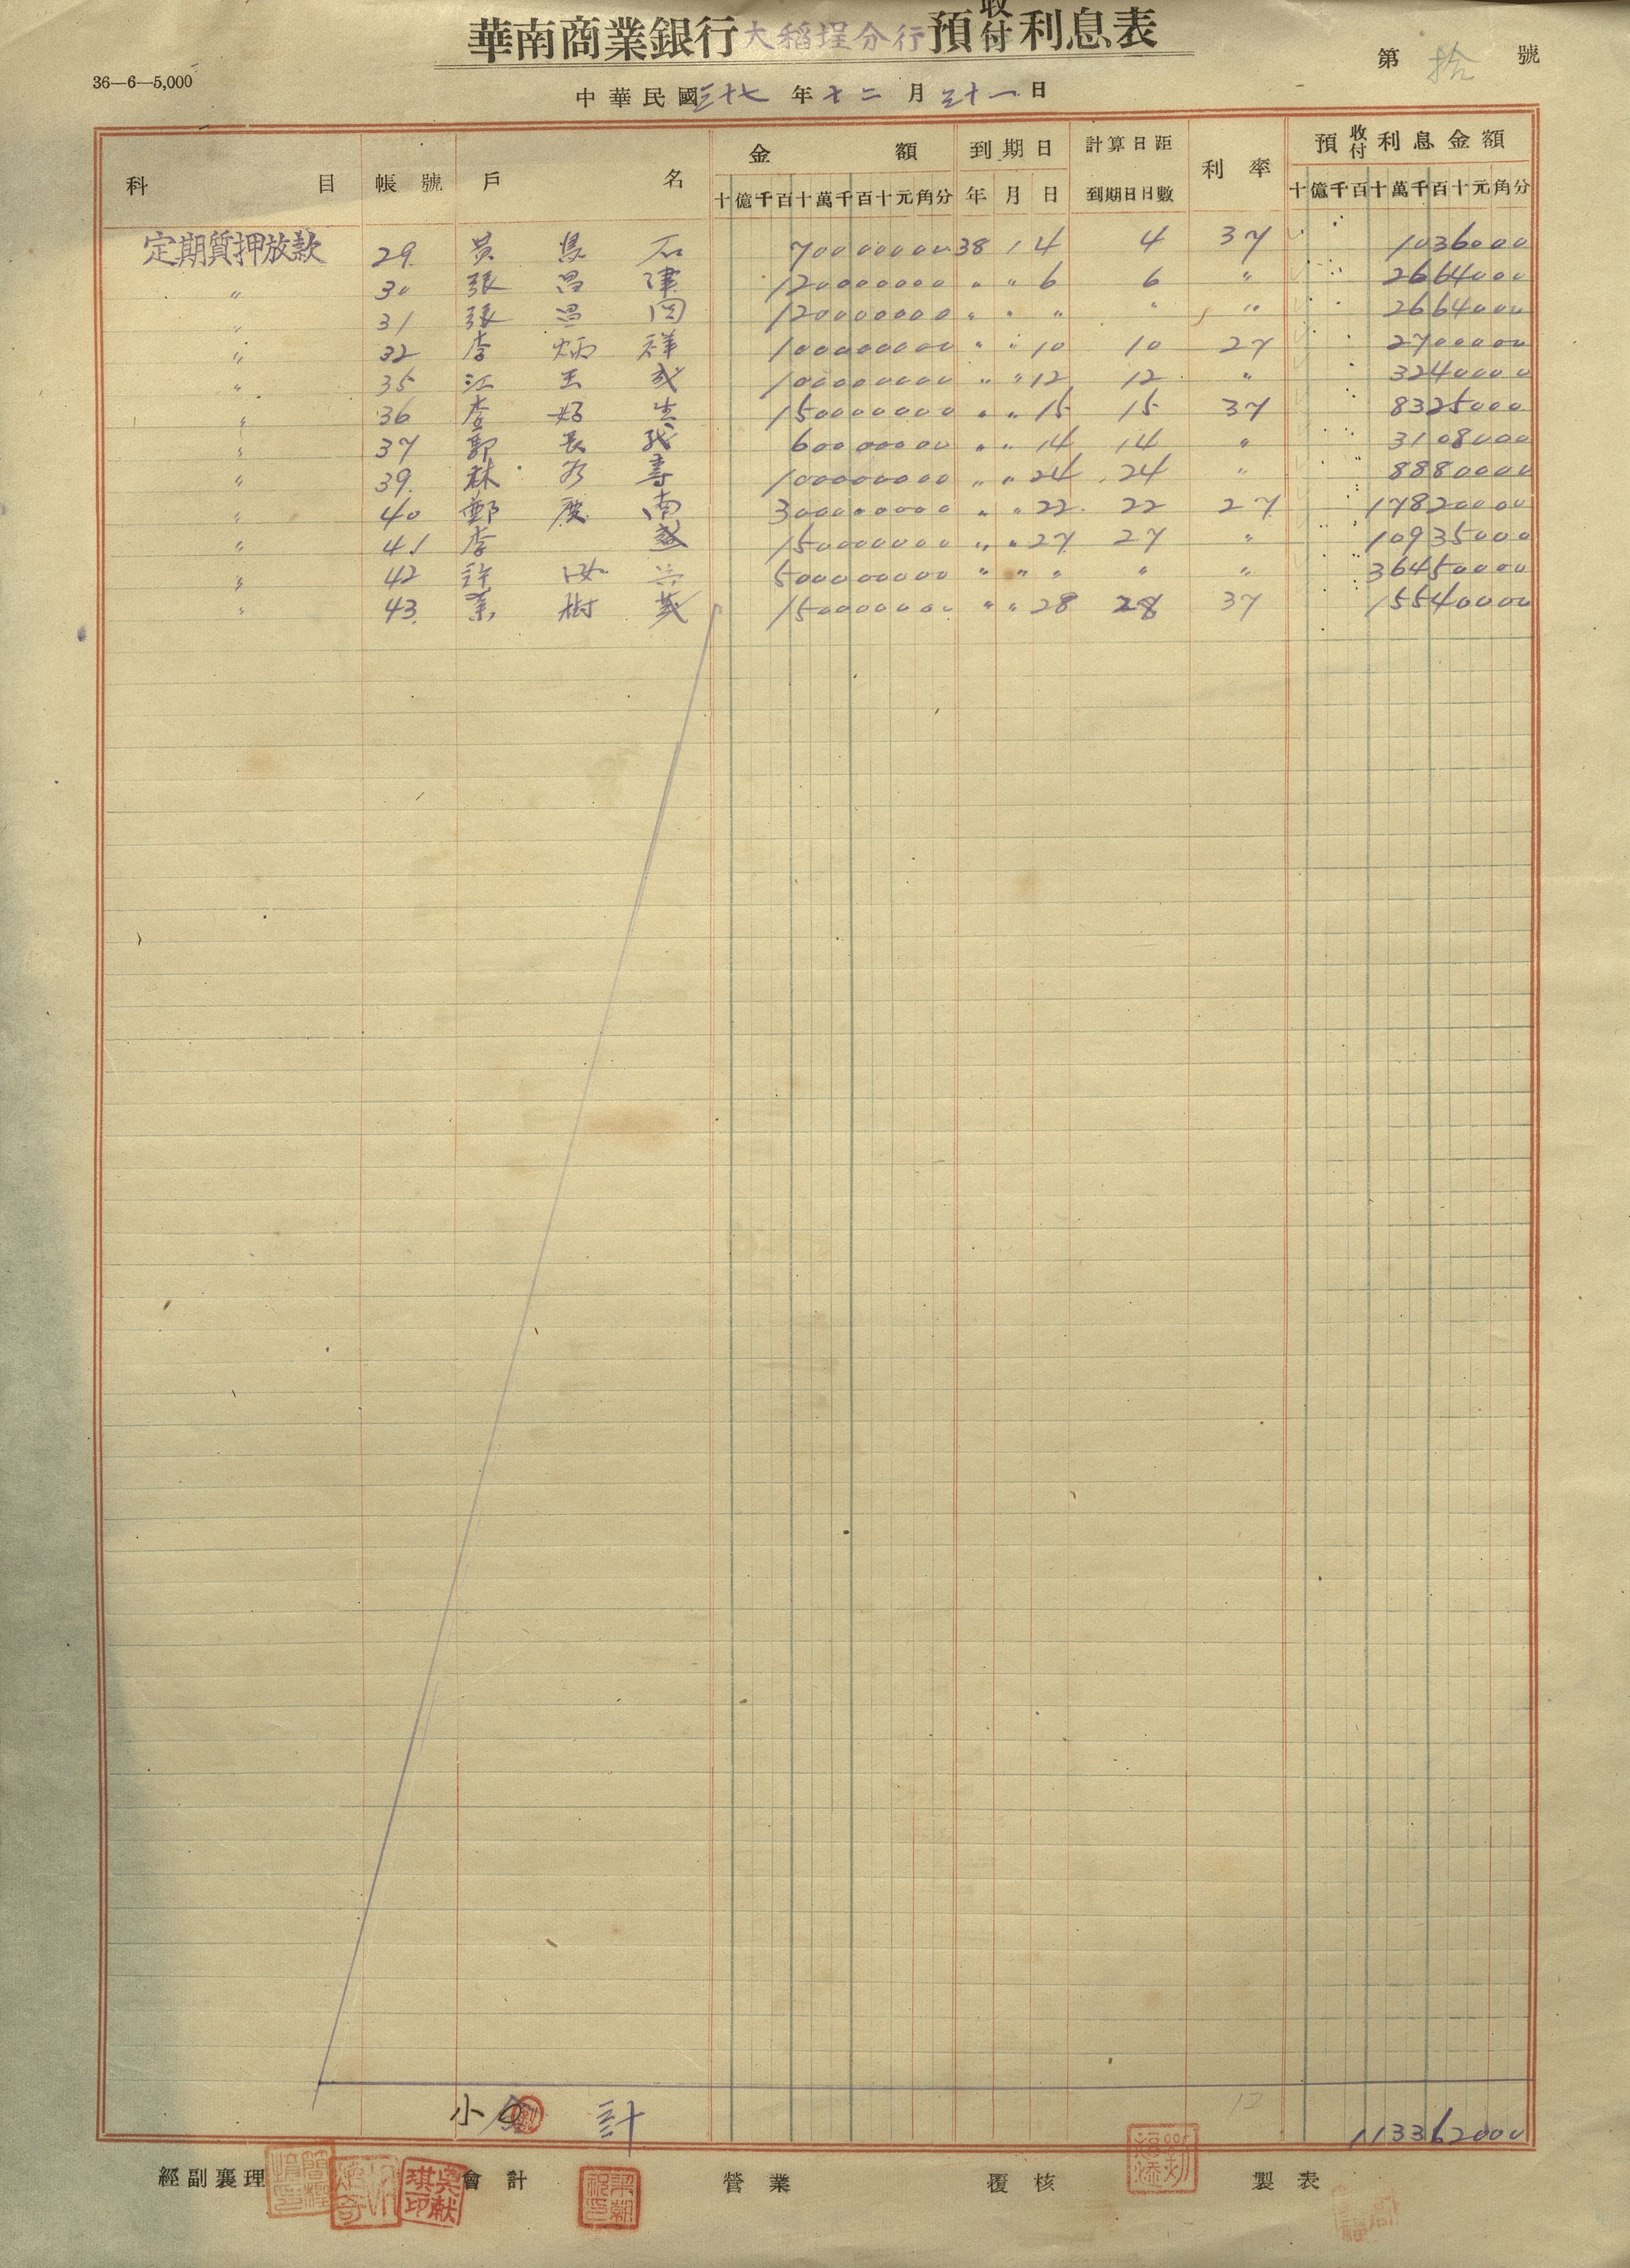 華南商業銀行大稻埕分行預收付利息表
第 拾 號
36—6—5,000
中華民國三十七年十二月三十一日
科目 帳號 戶名 金額 到期日 計算日距到期日日數 利率 預收付利息金額
十億千百十萬千百十元角分 年 月 日 十億千百十萬千百十元角分
定期質押放款 29. 黃 石 700000000 38 1 4 4 37 1036000
〃 30 張昌 1200000000 〃 〃 6 6 〃 2664000
〃 31 張昌 1200000000 〃 〃 〃 〃 〃 2664000
〃 32 李炳祥 1000000000 〃 〃 10 10 27 2700000
〃 35 江玉成 1000000000 〃 〃 12 12 〃 3240000
〃 36 李 生 1500000000 〃 〃 15 15 37 8325000
〃 37 郭長 600000000 〃 〃 14 14 〃 3108000
〃 39. 林 壽 1000000000 〃 〃 24 24 〃 8880000
〃 40 鄭慶南 3000000000 〃 〃 22 22 27 17820000
〃 41 李 1500000000 〃 〃 27 27 〃 10935000
〃 42 許 5000000000 〃 〃 〃 〃 〃 36450000
〃 43 葉樹 1500000000 〃 〃 28 28 37 15540000
小計 113362000
經副襄理 會計 營業 覆核 製表
吳献琪印